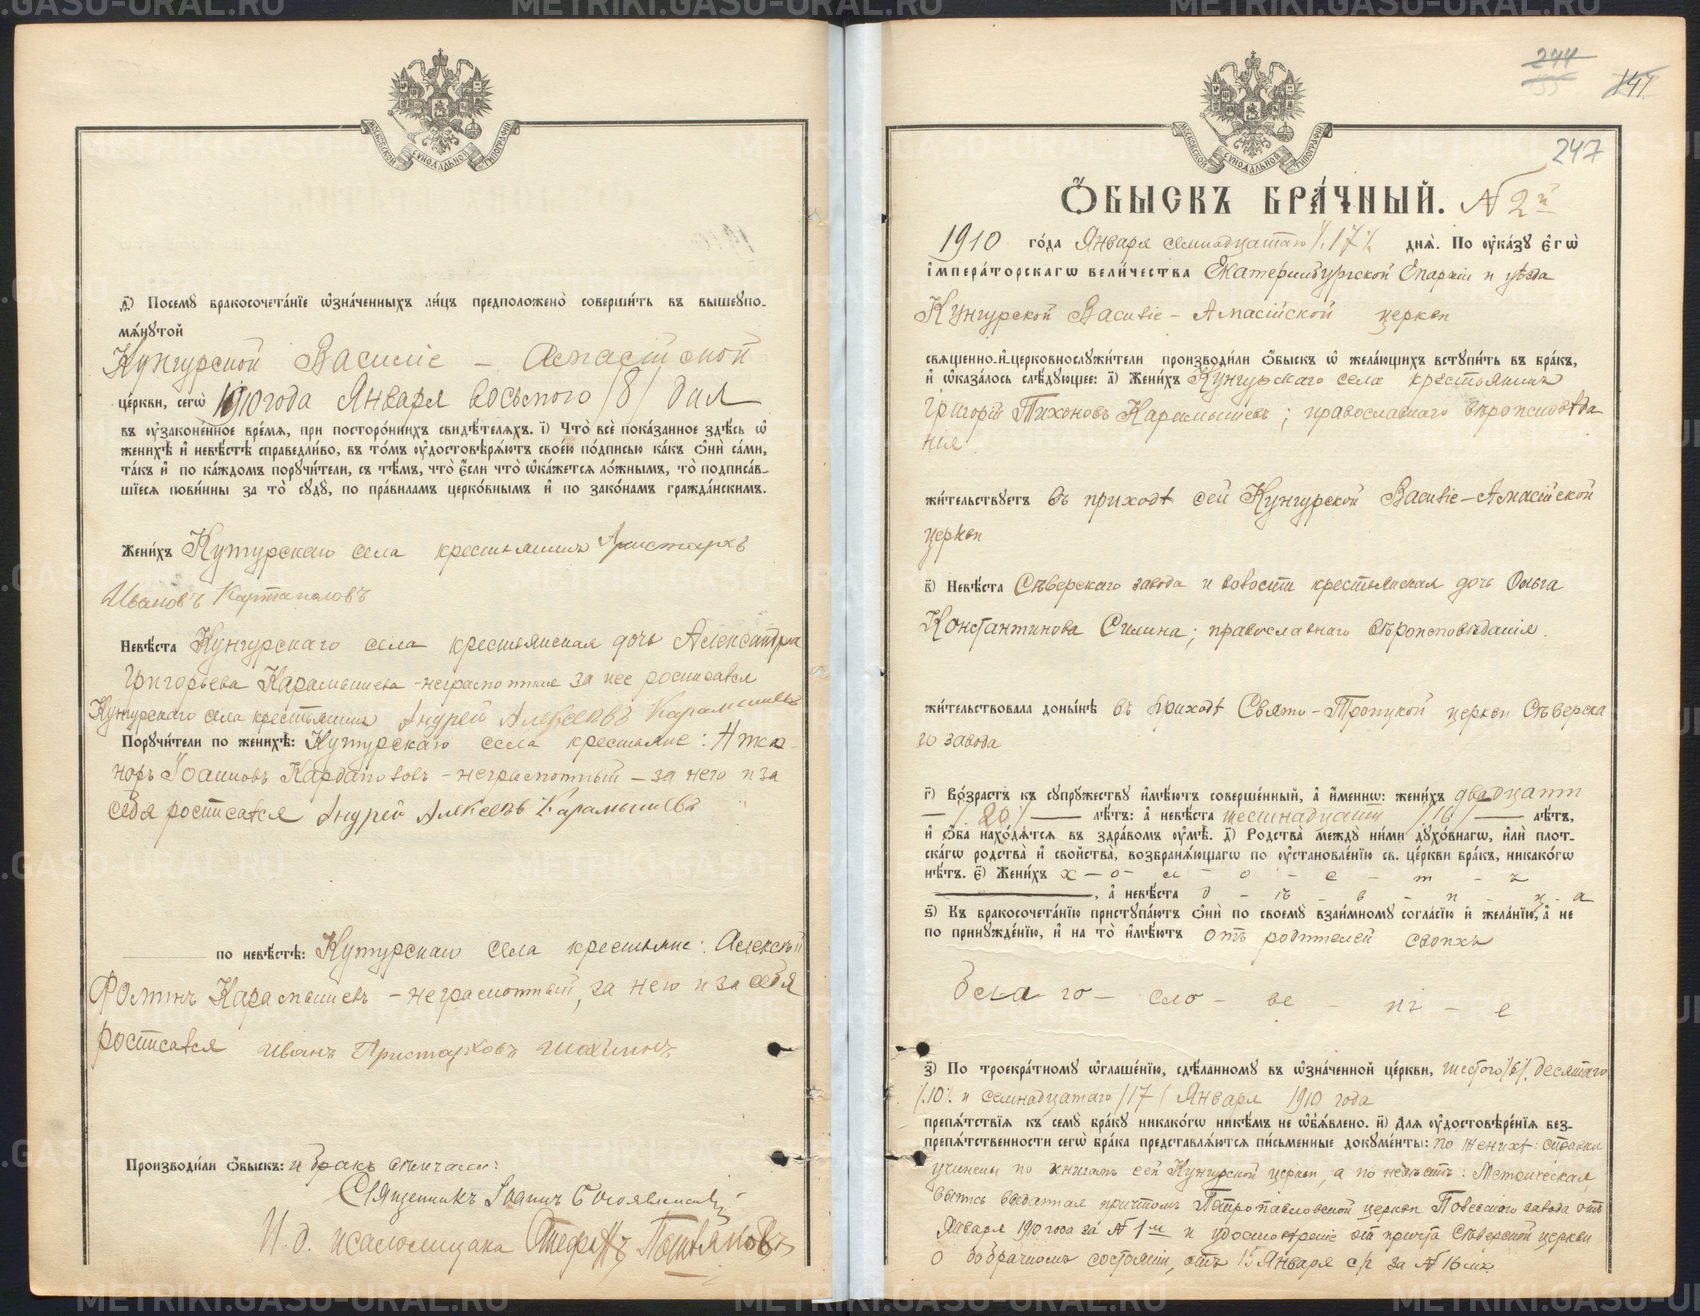 МОСКОВСКОЙ СУНОДАЛЬНОЙ ТИПОГРАФІИ
ѳ҃) Посемꙋ бракосочета́нїе ѡ҆зна́ченныхъ ли́цъ предположено̀ соверши́ть въ вышеꙋпо-
мѧ́нꙋтой
Кунгурской Василіе – Амасійской
це́ркви, сегѡ̀ 1910 года Января восьмого /8/ дня
въ оу҆зако́не́нное вре́мѧ, при посторо́ннихъ свидѣ́телѧхъ. і҃) Что̀ всѐ пока́занное здѣ́сь ѡ҆
женихѣ̀ и҆ невѣ́стѣ справедли́во, въ то́мъ оу҆достовѣрѧ́ютъ свое́ю по́дписью ка́къ ѻ҆нѝ са́ми,
та́къ и҆ по ка́ждомъ порꙋчи́тели, съ тѣ́мъ, что̀ є҆́сли что̀ ѡ҆ка́жетсѧ ло́жнымъ, то̀ подписа́в-
шїесѧ пови́нны за то̀ сꙋдꙋ̀, по пра́виламъ церко́внымъ и҆ по зако́намъ гражда́нскимъ.
Жени́хъ Кунгурскаго села крестьянинъ Аристархъ
Ивановъ Картаполовъ
Невѣ́ста Кунгурскаго села крестьянская дочь Александра
Григорьева Карамышева – неграмотная за нее росписался
Кунгурскаго села крестьянинъ Андрей Алексѣевъ Карамышевъ
Порꙋчи́тели по женихѣ̀: Кунгурскаго села крестьяне:
Іоанновъ – неграмотный – за него и за
себя росписался Андрей Алексѣевъ Карамышевъ
по невѣ́стѣ: Кунгурскаго села крестьяне: Алексѣй
Фоминъ Карамышевъ – неграмотный, за него и за себя
росписался Иванъ Аристарховъ
Производи́ли ѻ҆́быскъ: и бракъ вѣнчали:
Священникъ Іоаннъ Богоявленскій
И. д. псаломщика Стефанъ
244
141
247
МОСКОВСКОЙ СУНОДАЛЬНОЙ ТИПОГРАФІИ
Ѻ҆́БЫСКЪ БРА́ЧНЫЙ. № 2й
1910 го́да Января семнадцатаго /17/ днѧ̀. По оу҆ка́зꙋ є҆гѡ̀
і҆мпера́торскагѡ вели́чества Екатеринбургской Епархіи и уѣзда
Кунгурской Василіе – Амасійской церкви
свѧще́нно-и҆-церковнослꙋжи́тели производи́ли ѻ҆́быскъ ѡ҆ жела́ющихъ встꙋпи́ть въ бра́къ,
и҆ ѡ҆каза́лось слѣ́дꙋющее: а҃) Жени́хъ Кунгурскаго села крестьянинъ
Григорій Тихоновъ Карамышевъ; православнаго вѣроисповѣда
нія
жи́тельствꙋетъ въ приходѣ сей Кунгурской Василіе – Амасійской
церкви
в҃) Невѣ́ста Сѣверскаго завода и волости крестьянская дочь Ольга
Константинова Силина; православнаго вѣроисповѣданія.
жи́тельствовала доны́нѣ въ приходѣ Свято – Троицкой церкви Сѣверска
го завода
г҃) Во́зрастъ къ сꙋпрꙋ́жествꙋ и҆мѣ́ютъ соверше́нный, а҆ и҆́менно: жени́хъ двадцати
/20/ лѣ́тъ: а҆ невѣ́ста шестнадцати /16/ лѣ́тъ,
и҆ ѻ҆́ба нахо́дѧтсѧ въ здра́вомъ оу҆мѣ̀. д҃) Родства̀ междꙋ̀ ни́ми дꙋхо́внагѡ, и҆лѝ плот-
ска́гѡ родства̀ и҆ сво́йства̀, возбранѧ́ющагѡ по оу҆становле́нїю св. це́ркви бра́къ, никако́гѡ
нѣ́тъ. є҃) Жени́хъ х – о – л – о – с – т – ъ
, а҆ невѣ́ста д – ѣ – в – и – ц – а
ѕ҃) Къ бракосочета́нїю пристꙋпа́ютъ ѻ҆нѝ по своемꙋ̀ взаи́мномꙋ согла́сїю и҆ жела́нїю, а҆ не
по принꙋжде́нїю, и҆ на то̀ и҆мѣ́ютъ отъ родителей своихъ
бла го – сло – ве – ні – е
з҃) По троекра́тномꙋ ѡ҆глаше́нїю, сдѣ́ланномꙋ въ ѡ҆зна́ченной це́ркви, шестого /6/, десятаго
/10/ и семнадцатаго /17/ Января 1910 года
препѧ́тствїѧ къ семꙋ̀ бра́кꙋ никако́гѡ никѣ́мъ не ѡ҆б̾ѧ́влено. и҃) Длѧ оу҆достовѣре́нїѧ без-
препѧ́тственности сегѡ̀ бра́ка представлѧ́ютсѧ пи́сьменные докꙋме́нты: по женихѣ: справки
учинены по книгамъ сей Кунгурской церкви, а по невѣстѣ: Метрическая
выпись выданная причтомъ Петропавловской церкви Полевского завода отъ
Января 1910 года за № 1м и удостовѣреніе отъ причта Сѣверской церкви
о добрачномъ состояніи, отъ 15 Января с/г за № 16мъ.
METRIKI.GASU-URAL.RU